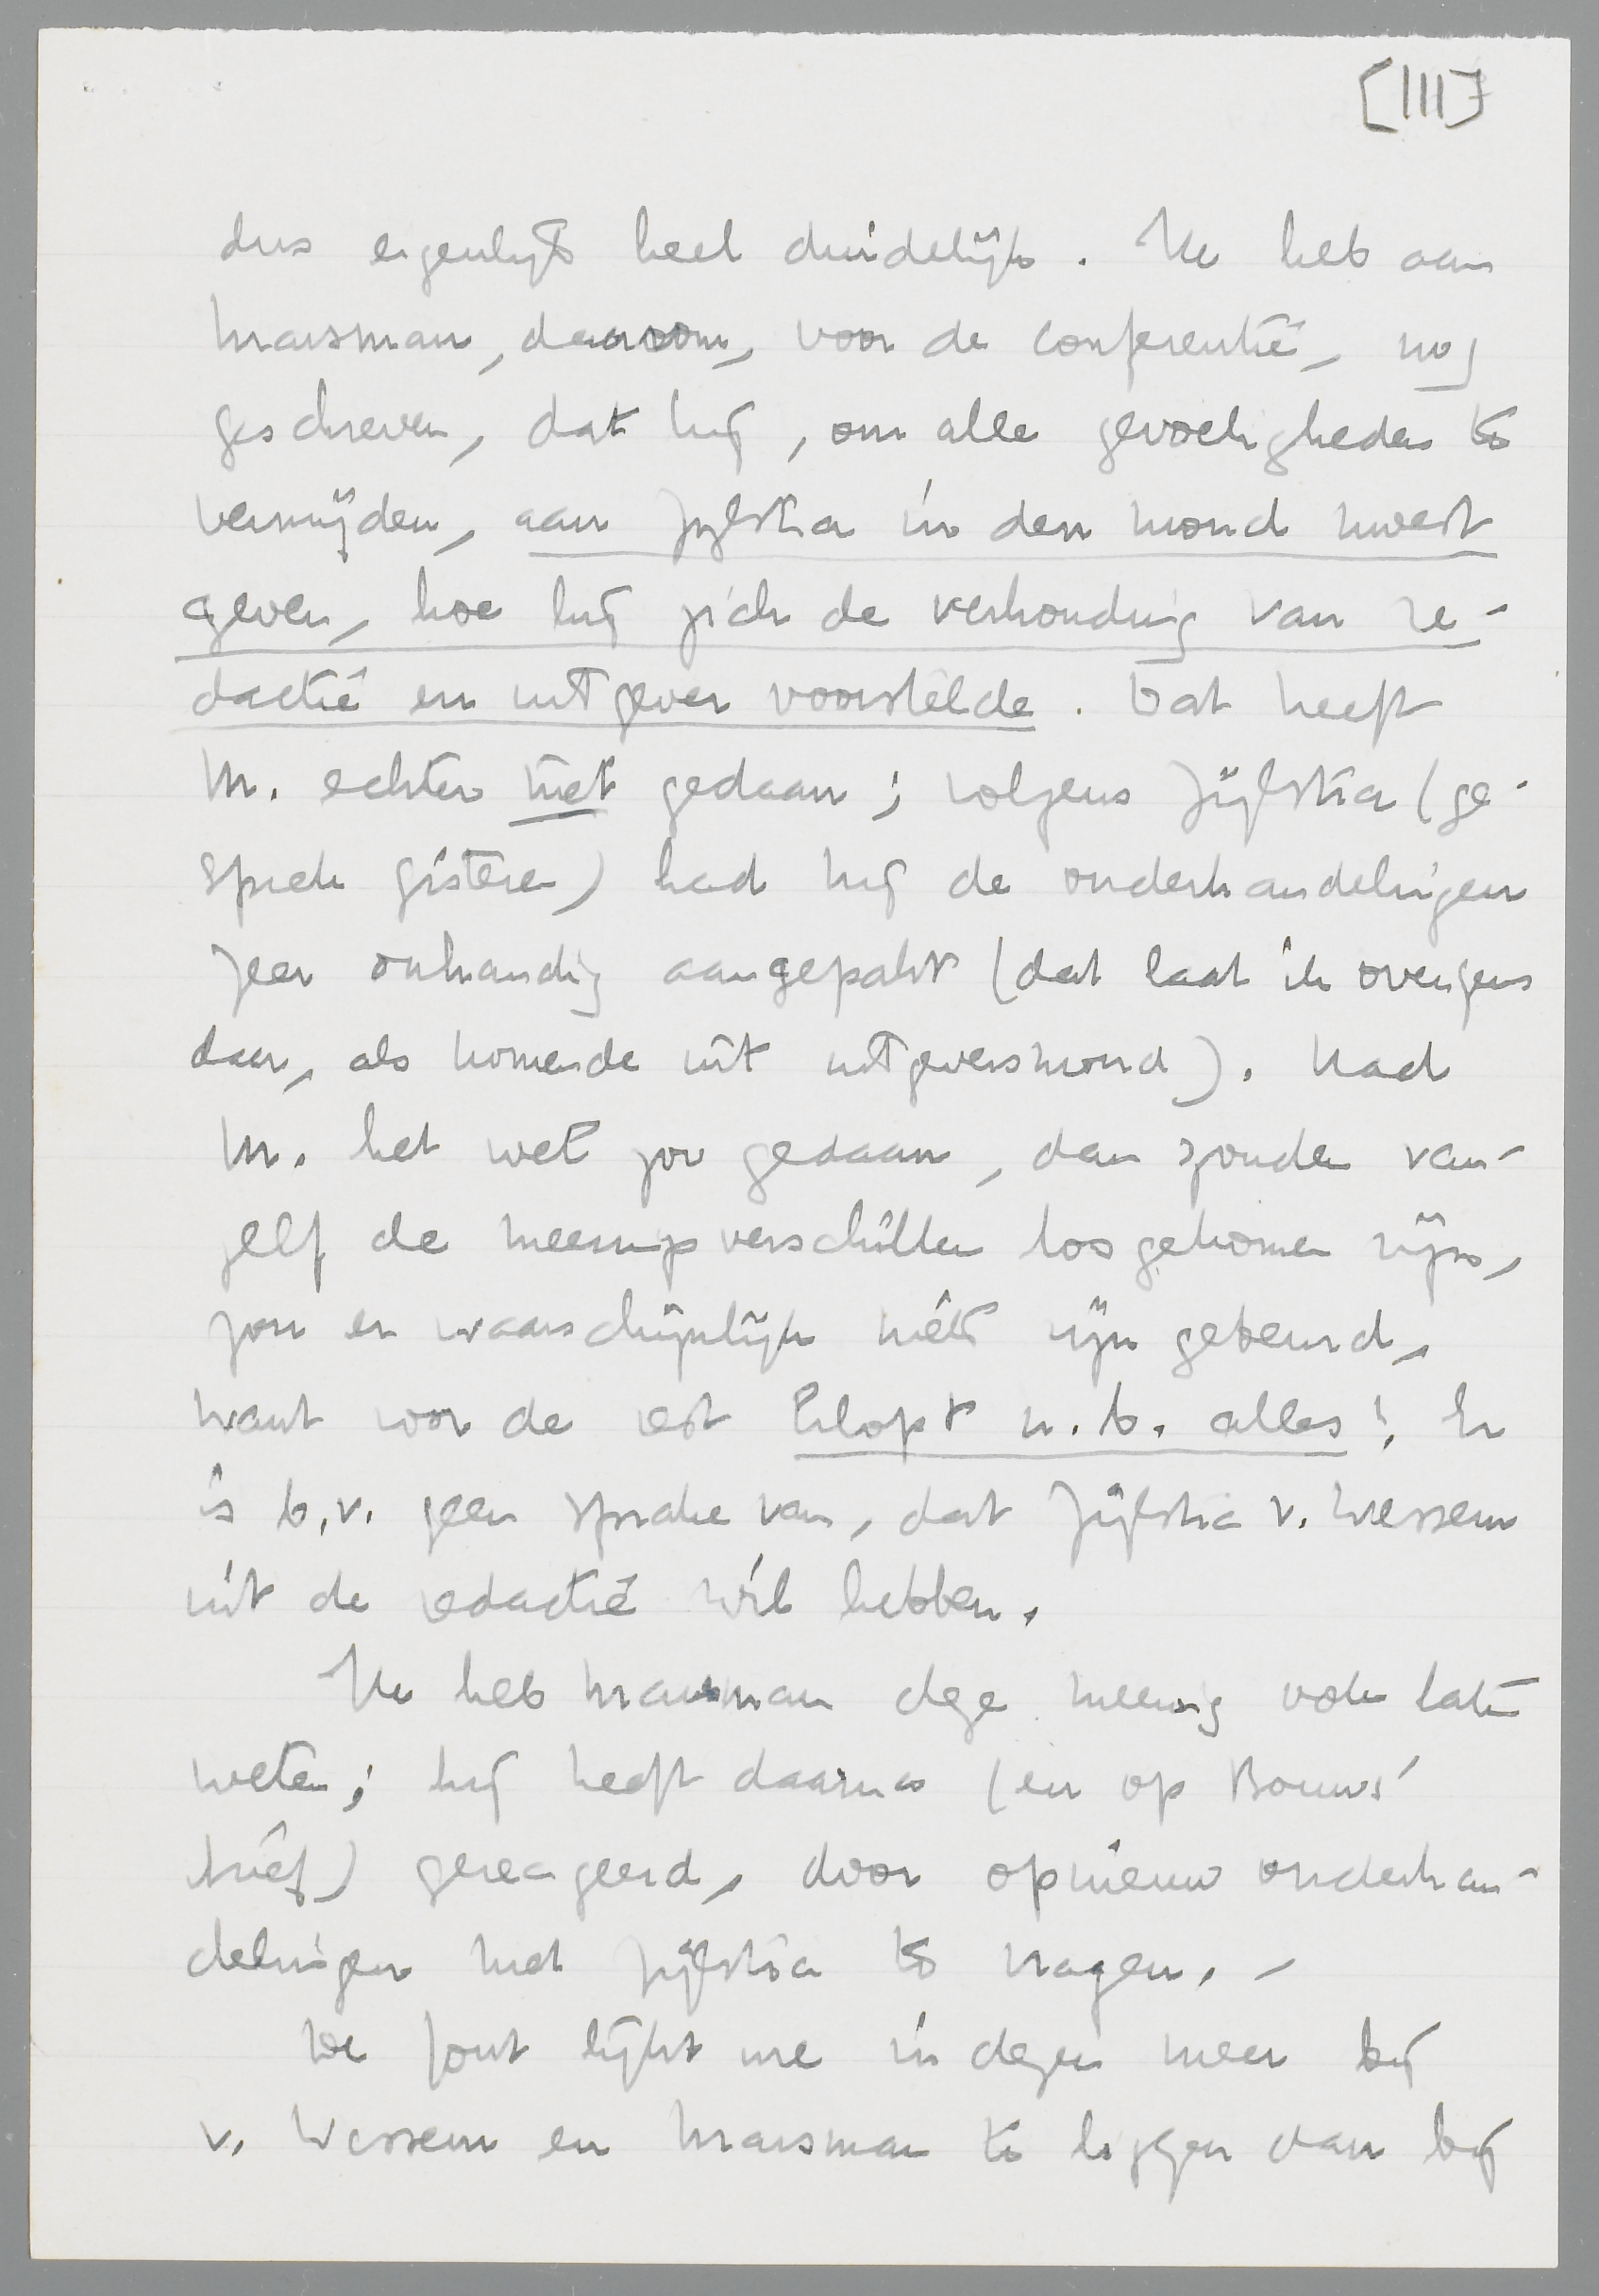 [III]
dus eigenlijk heel duidelijk. Ik heb aan
Marsman, daarom, voor de conferentie, nog
geschreven, dat hij, om alle gevoeligheden te
vermijden, aan Zijlstra in den mond moest
geven, hoe hij zich de verhouding van re-
dactie en uitgever voorstelde. Dat heeft
M. echter niet gedaan; volgens Zijlstra (ge-
sprek gisteren) had hij de onderhandelingen
zeer onhandig aangepakt (dat laat ik overigens
daar, als komende uit uitgeversmond). Had
M. het wel zoo gedaan, dan zouden van-
zelf de meeningsverschillen los gekomen zijn,
zou er waarschijnlijk niets zijn gebeurd,
want voor de rest klopt n.b. alles! Er
is b.v. geen sprake van, dat Zijlstra v. Wessem
uit de redactie wil hebben.
Ik heb Marsman deze meening ook laten
weten; hij heeft daarna (en op Bouws'
brief) gereageerd, door opnieuw onderhan-
delingen met Zijlstra te vragen. –
De fout lijkt me in dezen meer bij
v. Wessem en Marsman te liggen dan bij